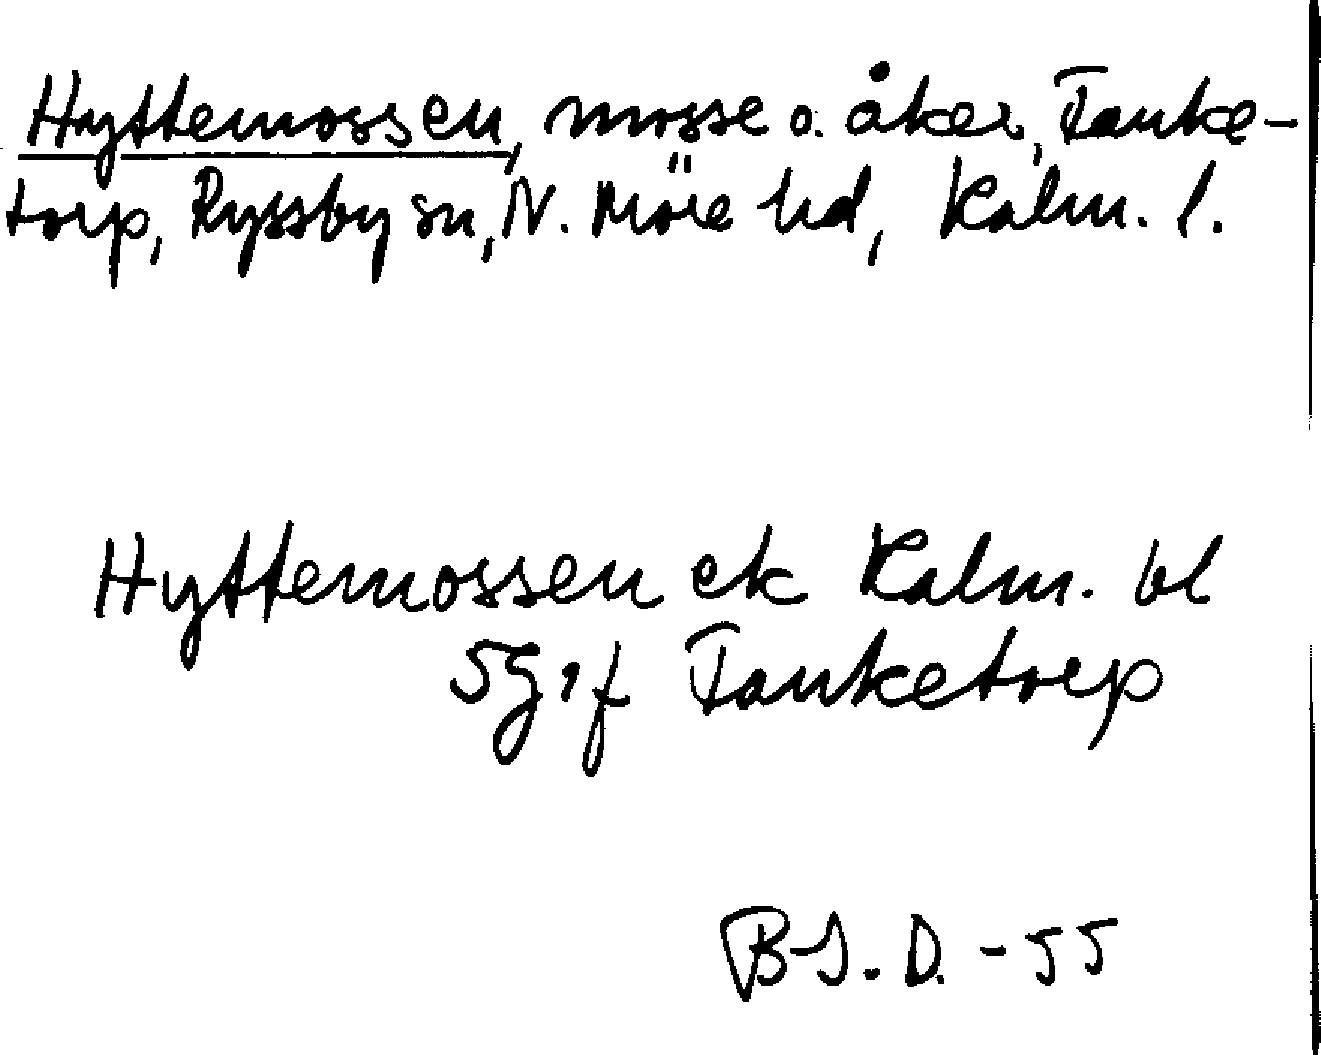 Hyttemossen, mosse o. åker, Tanke-
torp, Ryssby sn, N. Möre hd, Kalm. l.
Hyttemossen ek Kalm. bl
5g, f Tanketorp
B-J. D. -55